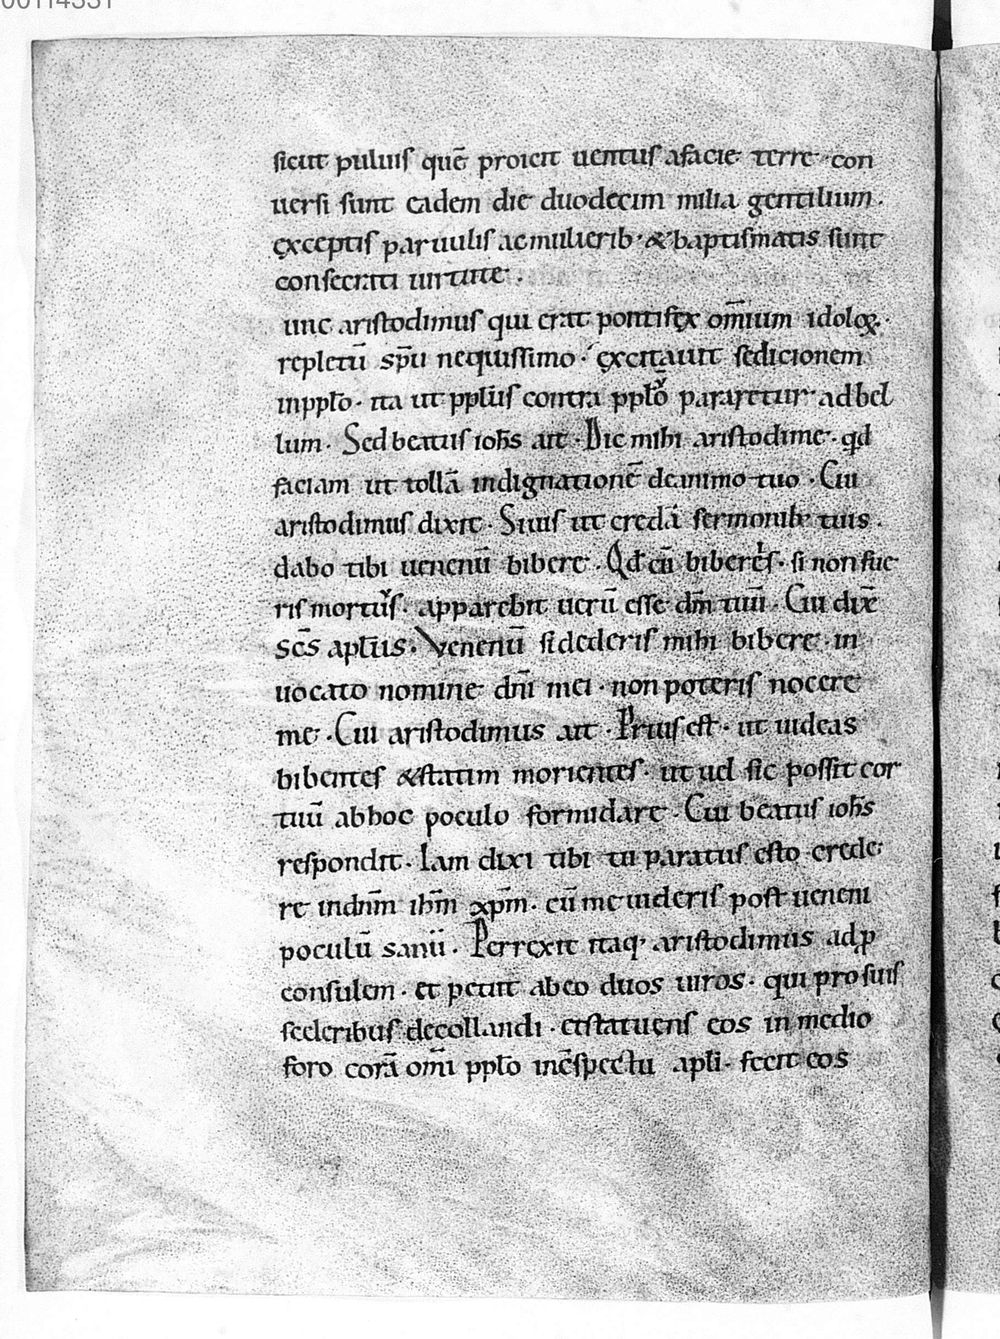 00114331
sicut puluis quē proicit uentus afacie terre con
uersi sunt eadem die duodecim milia gentilium.
exceptis paruulis ac mulierib· & baptismatis sunt
consecrati uirtute.
unc aristodimus qui erat pontifex om̄ium idoloꝝ.
repletū sp̄u nequissimo· excitauit sedicionem
inppło· ita ut ppłus contra ppłō pararetur adbel
lum· Sed beatus ioħs ait· Dic mihi aristodime· qđ
faciam ut tollā indignationē deanimo tuo· Cui
aristodimus dixit· Siuis ut credā sermonib· tuis.
dabo tibi uenenū bibere· Qđ cū biberes· si non fue
ris mortuus· apparebit uerū esse dm̄ tuū· Cui dix̄
sc̄s aptūs· Venenū sidederis mihi bibere· in
uocato nomine dn̄i mei· non poteris nocere
me· Cui aristodimus ait· Prius est· ut uideas
bibentes &statim morientes· ut uel sic possit cor
tuū abhoc poculo formidare· Cui beatus ioħs
respondit· Iam dixi tibi tu paratus esto crede
re indn̄m ihm̄ xpm̄· cū me uideris post ueneni
poculū sanū· Perrexit itaq· aristodimus adp
consulem· et petiit abeo duos uiros· qui pro suis
sceleribus decollandi· etstatuens eos in medio
foro corā om̄i ppło incspectu apli· fecit eos